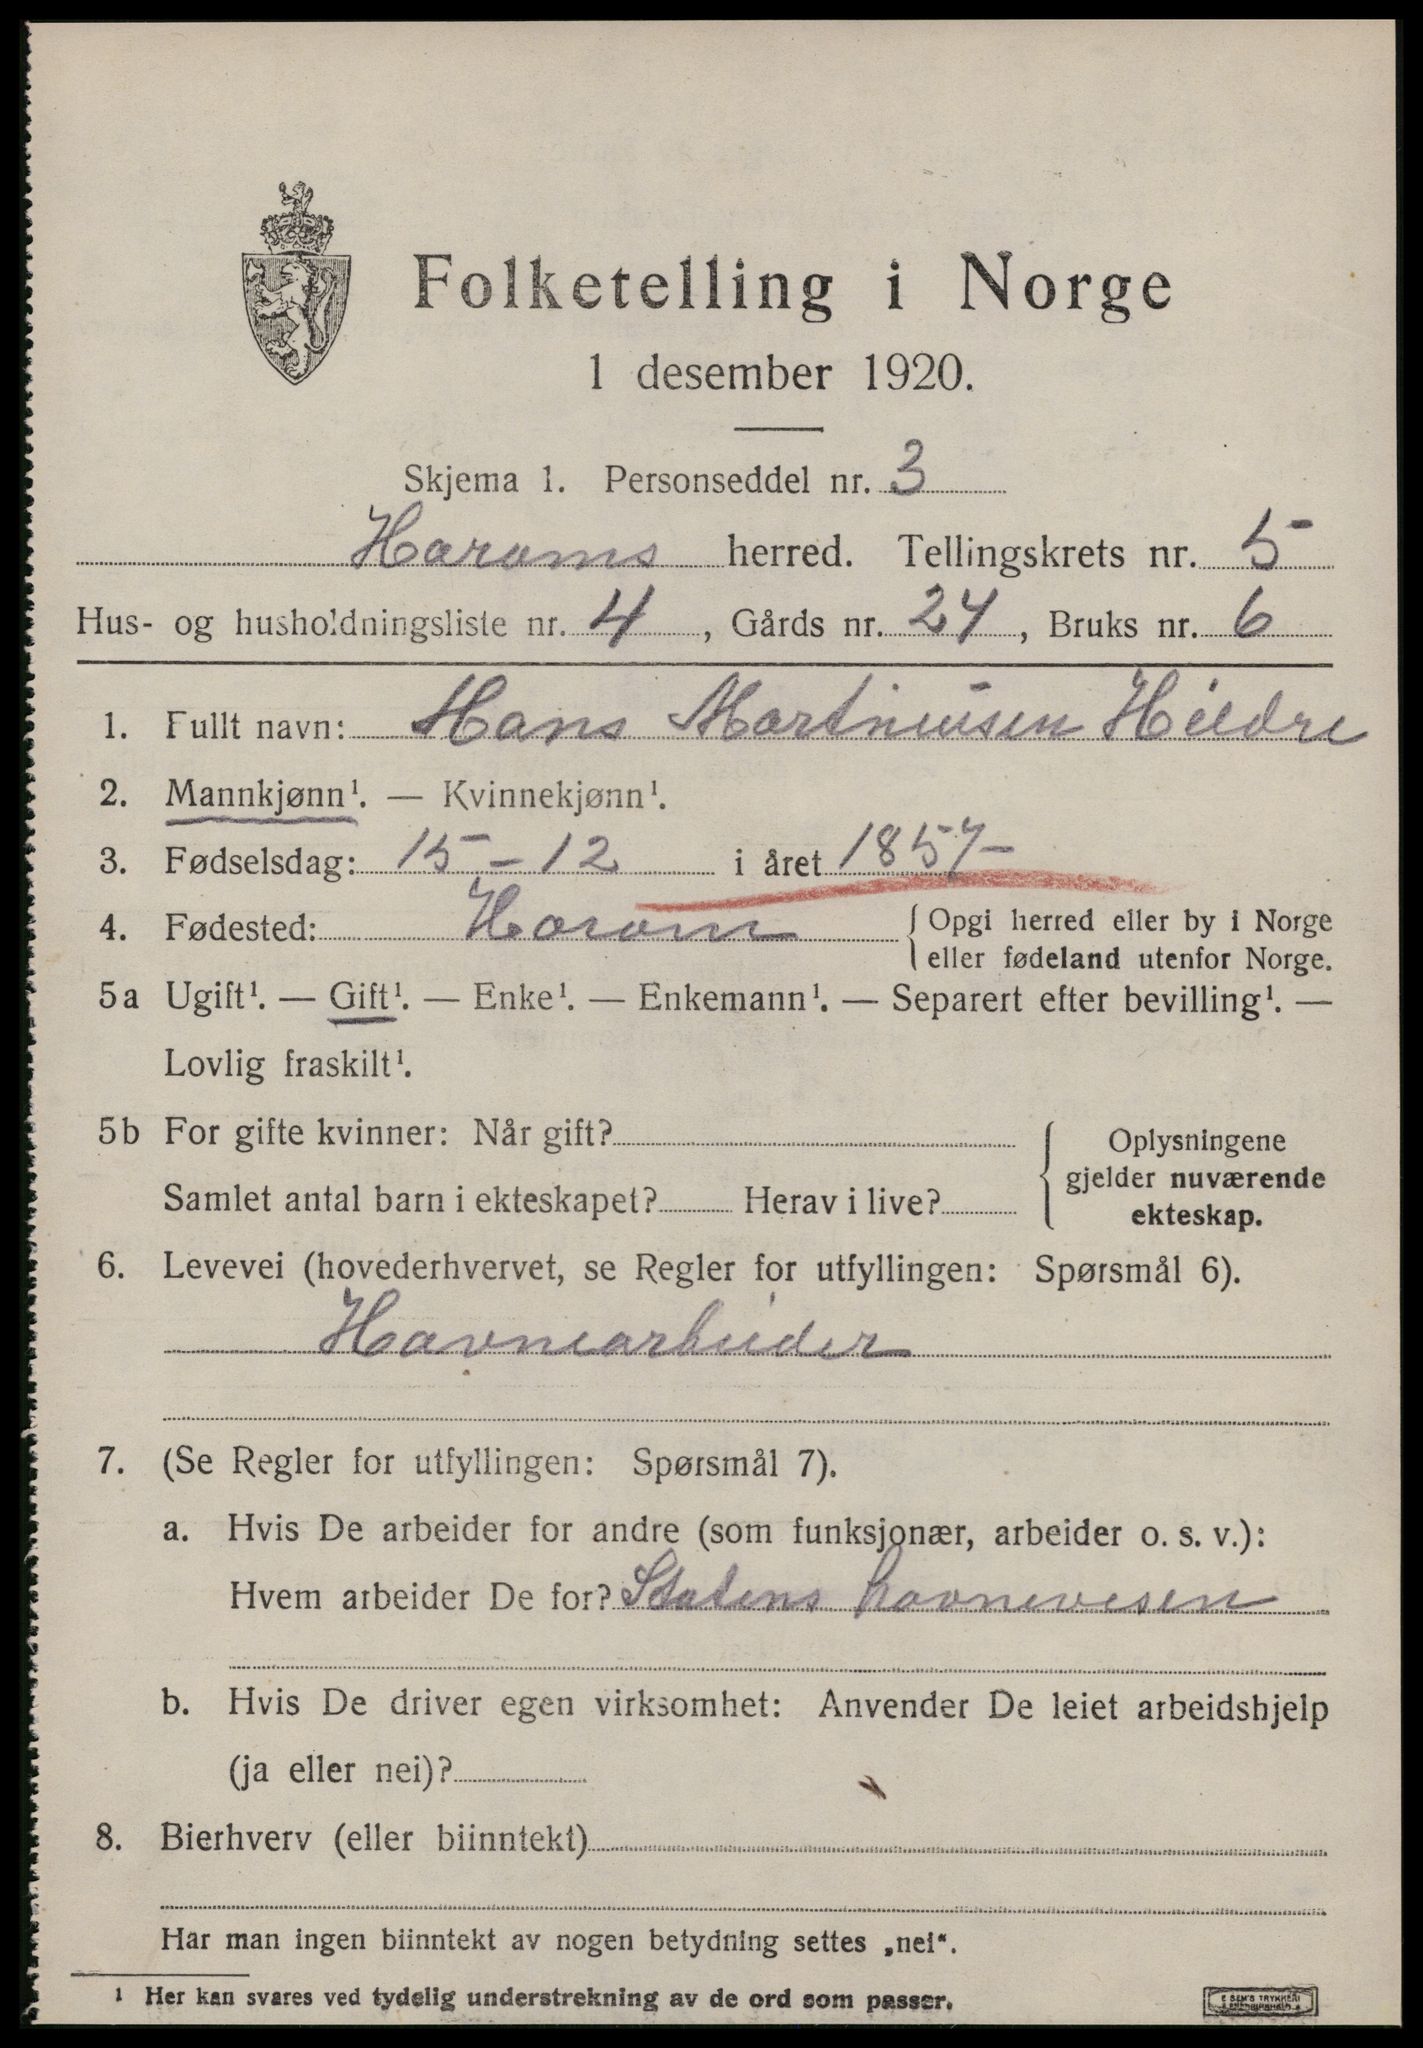 Folketelling i Norge
1 desember 1920.
Skjema 1. Personseddel nr. 3
Harams herred. Tellingskrets nr. 5
Hus- og husholdningsliste nr. 4, Gårds nr. 24, Bruks nr. 6
1. Fullt navn: Hans Martinusen Hildre
2. Mannkjønn¹. — Kvinnekjønn¹.
3. Fødselsdag: 15-12 i året 1857
4. Fødested: Haram { Opgi herred eller by i Norge
eller fødeland utenfor Norge.
5a Ugift¹. — Gift¹. — Enke¹. — Enkemann¹. — Separert efter bevilling¹. —
Lovlig fraskilt¹.
5b For gifte kvinner: Når gift?
Samlet antal barn i ekteskapet? Herav i live?
Oplysningene
gjelder nuværende
ekteskap.
6. Levevei (hovederhvervet, se Regler for utfyllingen: Spørsmål 6).
Havnearbeider
7. (Se Regler for utfyllingen: Spørsmål 7).
a. Hvis De arbeider for andre (som funksjonær, arbeider o. s. v.):
Hvem arbeider De for? Statens havnevesen
b. Hvis De driver egen virksomhet: Anvender De leiet arbeidshjelp
(ja eller nei)?
8. Bierhverv (eller biinntekt)
Har man ingen biinntekt av nogen betydning settes „nei“.
¹ Her kan svares ved tydelig understrekning av de ord som passer.